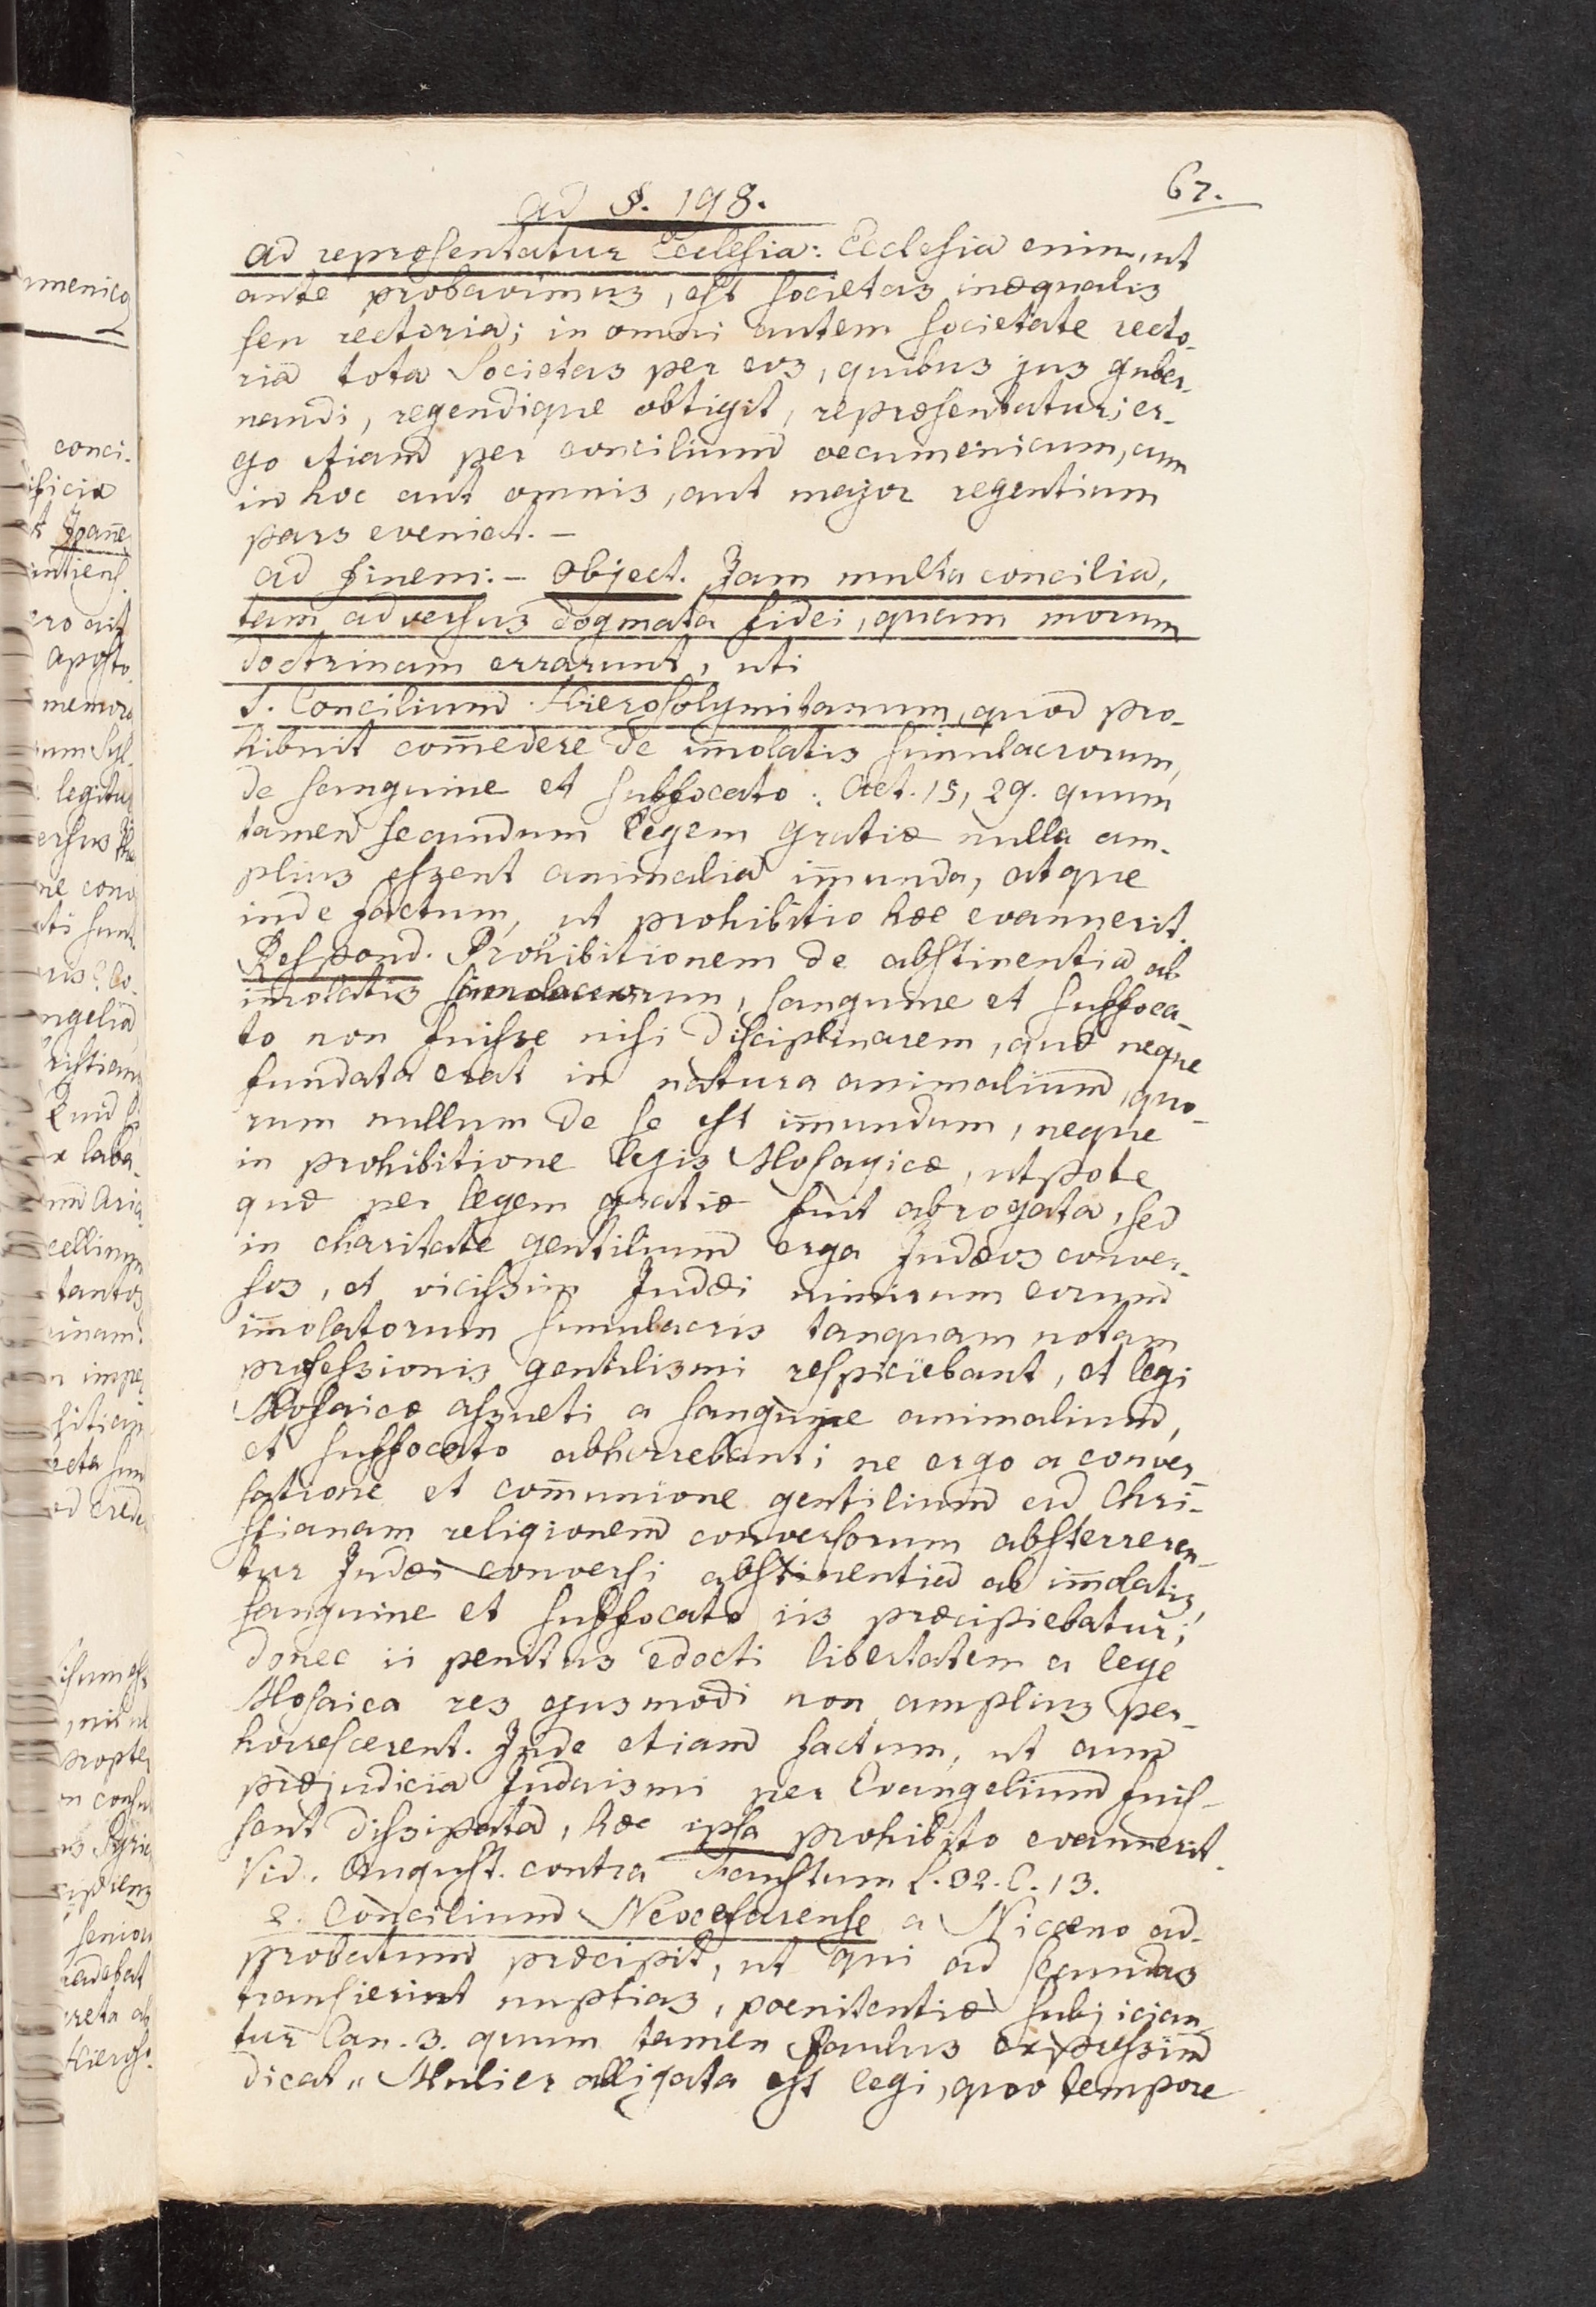 67.
ad §. 198.
ad repræsentatur Ecclesia: Ecclesia enim, ut
ante probavimus, est societas inæqualis
seu rectoria; in omni autem societate recto-
ria tota Societas per eos, quibus jus guber-
nandi, regendique obtigit, repræsentatur; er-
go etiam per concilium oecumenicum, cum
in hoc aut omnis, aut major regentium
pars eveniat. -
ad finem: - Object. Jam multa concilia,
tam adversus dogmata fidei, quam morum
doctrinam errarunt, uti
1. Concilium Hierosolymitanum, quod pro-
hibuit com̄edere de im̄olatis simulacrorum,
de sanguine et suffocato: Act. 15, 29. quum
tamen secundum legem gratiæ nulla am-
plius essent animalia im̄unda, atque
inde factum, ut prohibitio hæc evannerit.
Respond. Prohibitionem de abstinentia ab
im̄olatis simulacrorum, sanguine et suffoca-
to non fuisse nisi disciplinarem, quæ neque
fundata erat in natura animalium, quo-
rum nullum de se est im̄undum, neque
in prohibitione legis Mosayicæ, utpote
quæ per legem gratiæ fuit abrogata, sed
in charitate gentilium erga Judæos conver-
sos, et vicissim Judæi nimirum eorum
im̄olatorum simulacris tanquam notam
professionis gentilismi respiciebant, et legi
Mosaicæ assueti a sanguine animalium,
et suffocato abhorrebant; ne ergo a conver-
satione et com̄unione gentilium ad Chri-
stianam religionem conversorum absterreren-
tur Judæi conversi abstinentia ab im̄olatis,
sanguine et suffocato iis præcipiebatur;
donec ii penitus edocti libertatem a lege
Mosaica res ejusmodi non amplius per-
horrescerent. Inde etiam factum, ut cum
præjudicia Judaismi per Evangelium fuis-
sent dissipata, hæc ipsa prohibito evannerit.
Vid. August. contra Faustum L. 32. C. 13.
2. Concilium Neocesarense a Nicæno ad-
probatum præcipit, ut qui ad secundas
transierint nuptias, poenitentiæ subjician-
tur Can. 3. quum tamen Paulus expressim
dicat „ Mulier alligata est legi, quo tempore